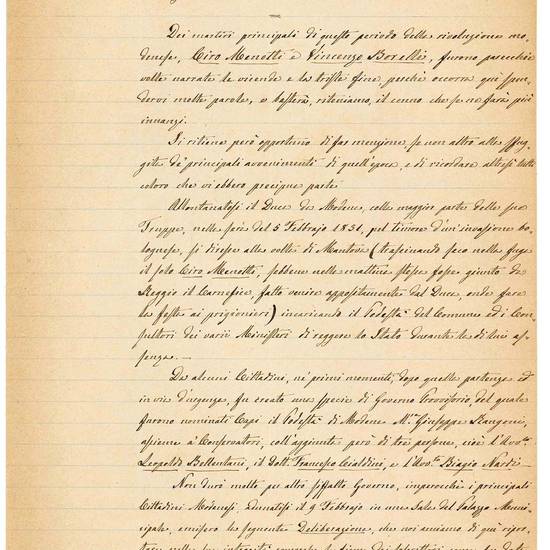 Dei martiri principali di questo periodo della rivoluzione mo-
denese, Ciro Menotti e Vincenzo Borelli, furono parecchie
volte narrate le vicende e la triste fine, perchè occorra qui spen-
dervi molte parole, e basterà, riteniamo, il cenno che se ne farà più
innanzi.
Si ritiene però opportuno di far menzione, se non altro alla sfug-
gita de' principali avvenimenti di quell'epoca, e di ricordare altresì tutti
coloro che vi ebbero precipua parte.
Allontanatosi il Duca da Modena, colla maggior parte delle sue
Truppe, nella sera del 5 Febbrajo 1831, pel timore d'un'invasione bo-
lognese, si diresse alla volta di Mantova (trascinando seco nella fuga
il solo Ciro Menotti, sebbene nella mattina stessa fosse giunto da
Reggio il Carnefice, fatto venire appositamente dal Duca, onde fare
la festa ai prigionieri) incaricando il Podestà del Comune ed i Con-
sultori dei varii Ministeri di reggere lo Stato durante la di lui as-
senza.—
Da alcuni Cittadini, ne' primi momenti, dopo quella partenza ed
in via d'urgenza, fu creato una specie di Governo Provvisorio, del quale
furono nominati Capi il Podestà di Modena M.se Giuseppe Rangoni,
assieme a' Conservatori, coll'aggiunta però di tre persone, cioè l'Avv.to
Leopoldo Bellentani, il Dott. Francesco Cialdini, e l'Avv.to Biagio Nardi.—
Non durò molto per altro siffatto Governo, imperocchè i principali
Cittadini Modenesi adunatisi il 9 Febbrajo in una Sala del Palazzo Muni-
cipale, emisero la seguente Deliberazione, che noi amiamo di qui ripor-